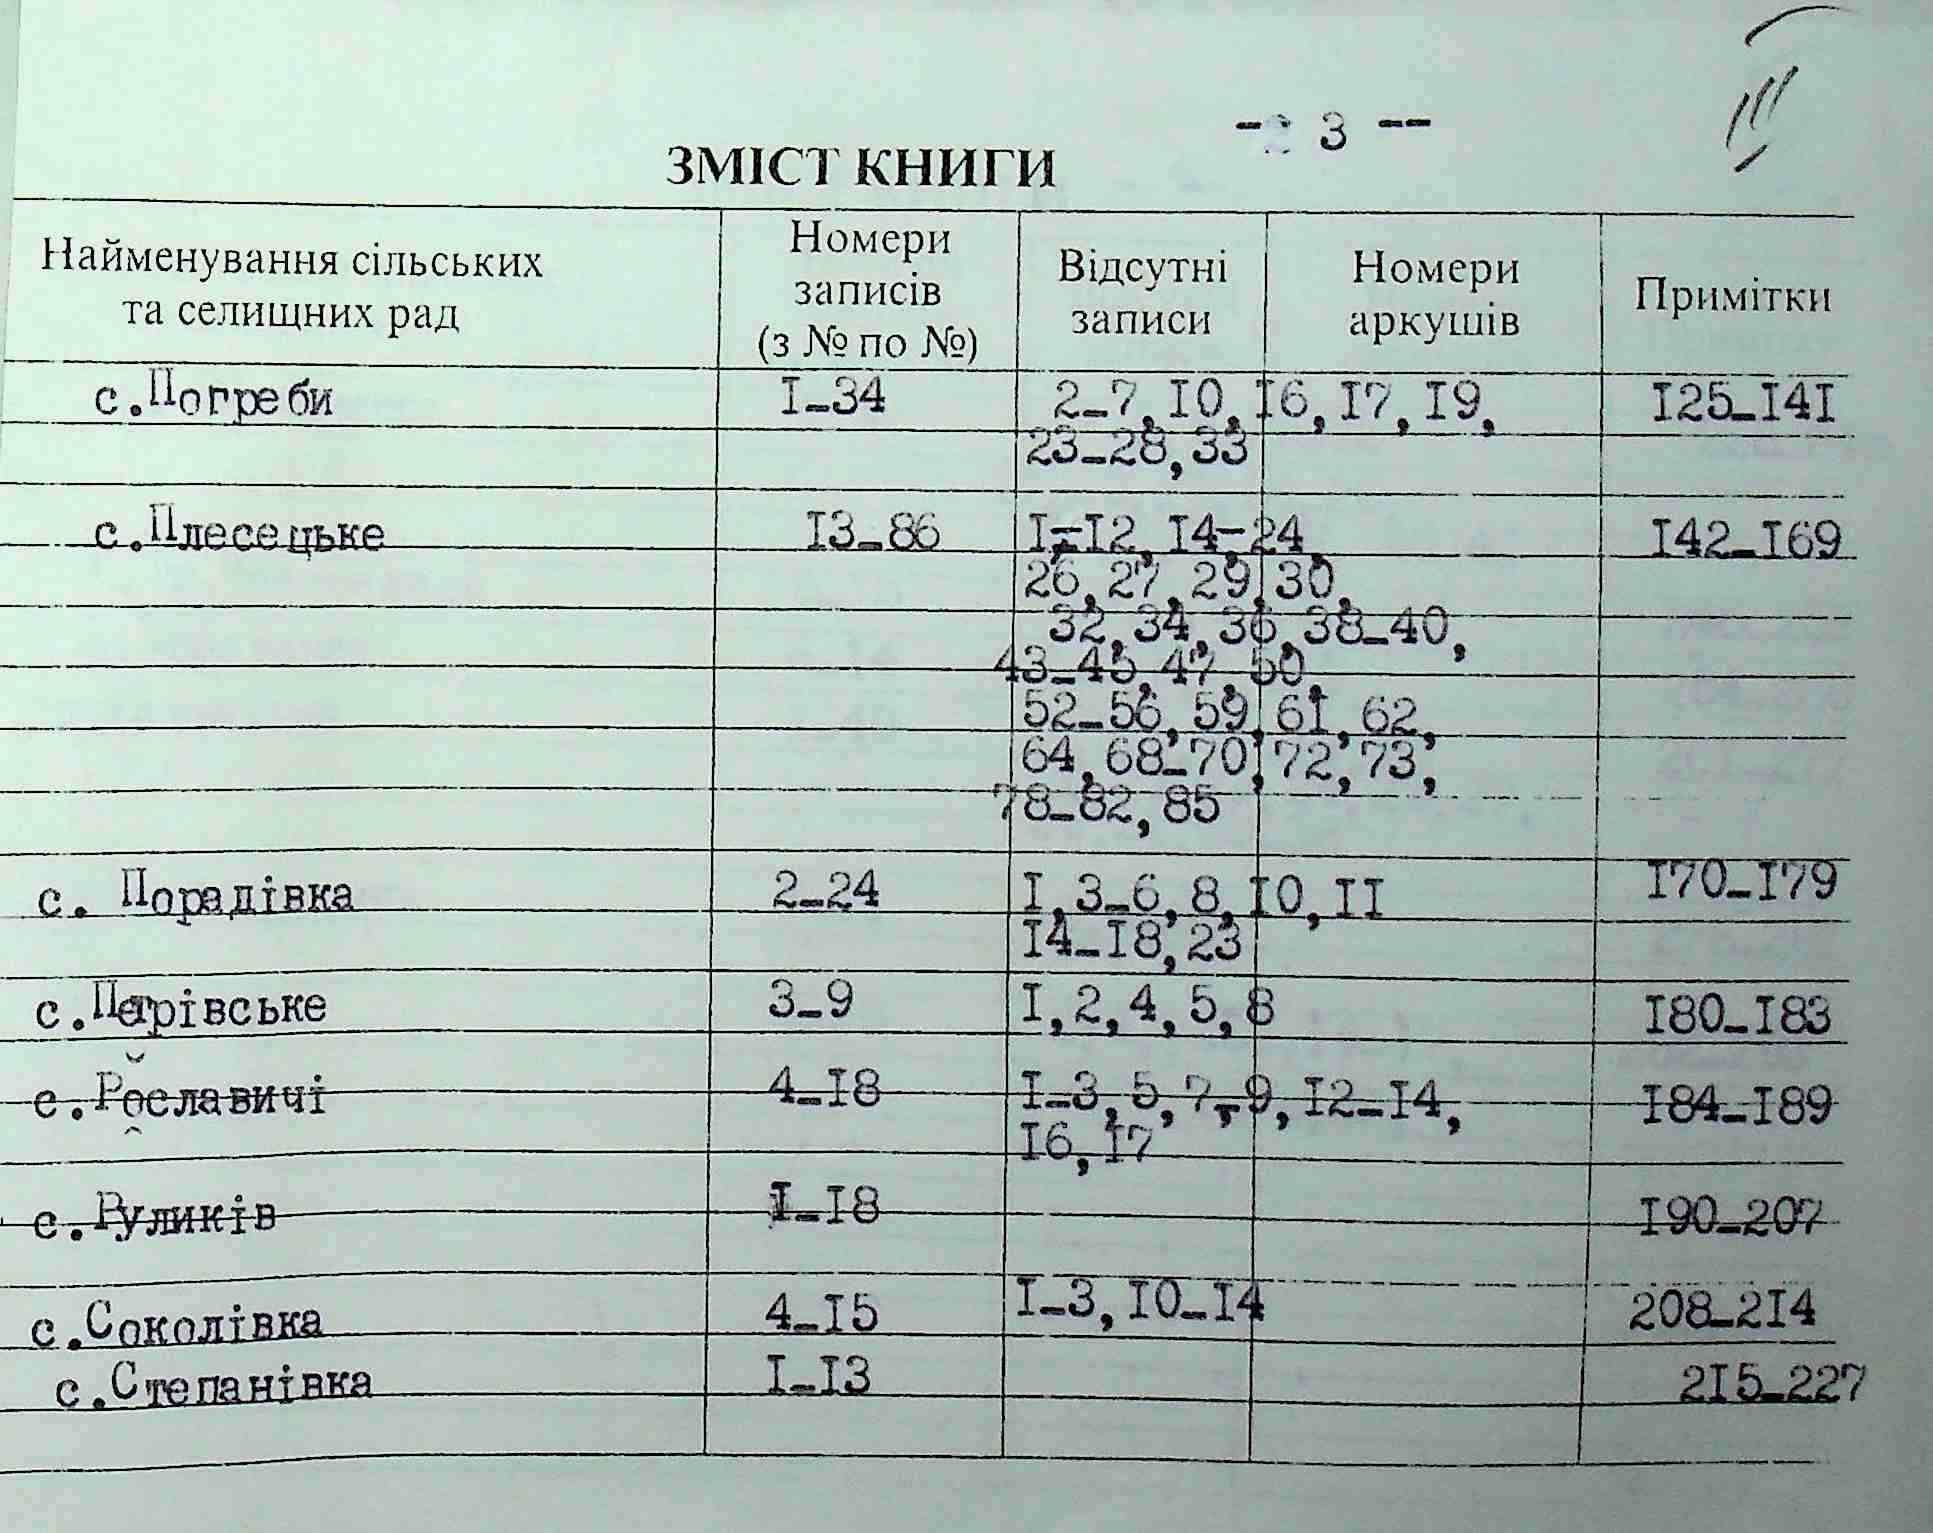 - 3 --
ЗМІСТ КНИГИ
Найменування сільських
та селищних рад
Номери
записів
(з № по №)
Відсутні
записи
Номери
аркушів
Примітки
с.Погреби I-34 2-7,I0,I6,I7,I9, I25-I4I
23-28,33
с.Плесецьке I3-86 I-I2,I4-24, I42-I69
26,27,29,30,
32,34,36,38-40,
43-45,47,50,
52-56,59,6I,62,
64,68-70,72,73,
78-82,85
с. Порадівка 2-24 I,3-6,8,I0,II I70-I79
I4-I8,23
с.Петрівське 3-9 I,2,4,5,8 I80-I83
с.Рославичі 4-I8 I-3,5,7-9,I2-I4, I84-I89
I6,I7
с.Руликів I-I8 I90-207
с.Соколівка 4-I5 I-3,I0-I4 208-2I4
с.Степанівка I-I3 2I5-227